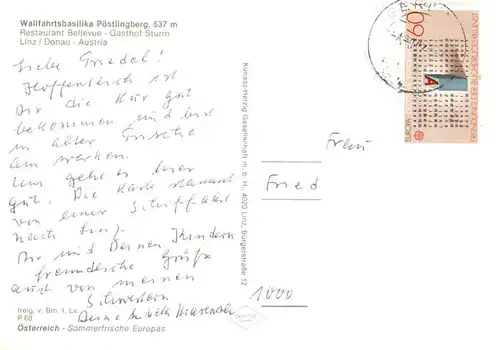 Wallfahrtsbasilika Pöstlingberg, 537 m
Restaurant Bellevue - Gasthof Sturm
Linz / Donau - Austria
Liebe Friedel!
Hoffentlich ist
Dir die Kur gut
bekommen und bist
in alter Frische
Uns geht es hier
gut. Die Karte stammt
von einer Schiffahrt
nach Linz.
Dir und Deinen Kindern
freundliche Grüße
auch von meinen
Schwestern
Deine
freig. v. Bm. f. Lv.
P 68
Österreich - Sommerfrische Europas
Kunasz-Herzig Gesellschaft m. b. H., 4020 Linz, Bürgerstraße 12
Frau
Fried
1000
60
EUROPA
ERFINDUNG DER BUCHDRUCKKUNST
A